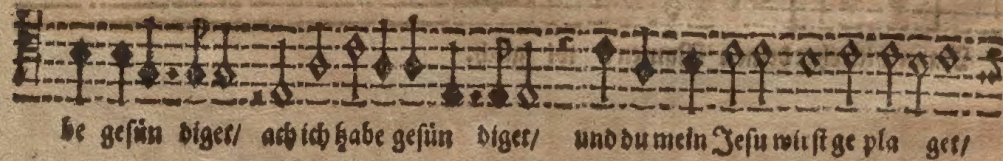 be gesün diget/ ach ich habe gesün diget/ und du mein Jesu wirst ge pla get/